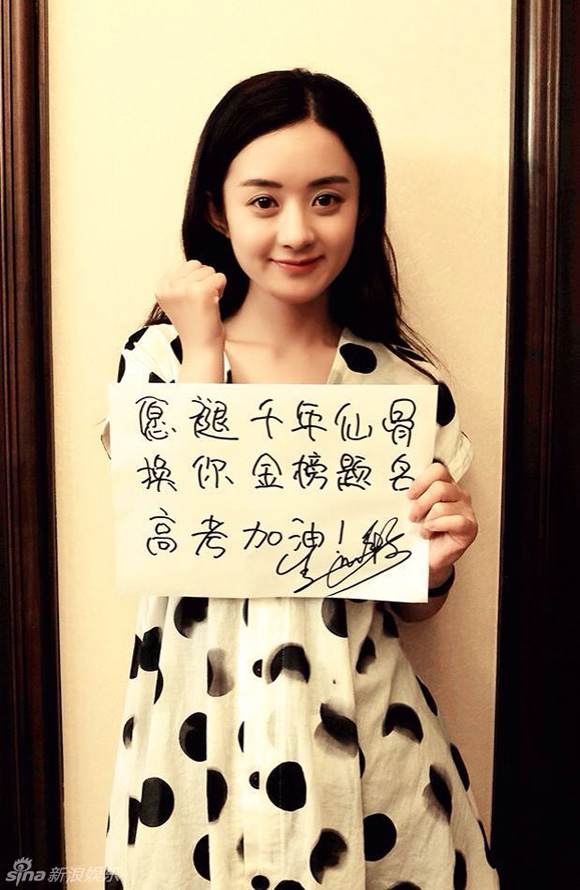 愿褪千年仙骨
换你金榜题名
高考加油!
sina 新浪娱乐